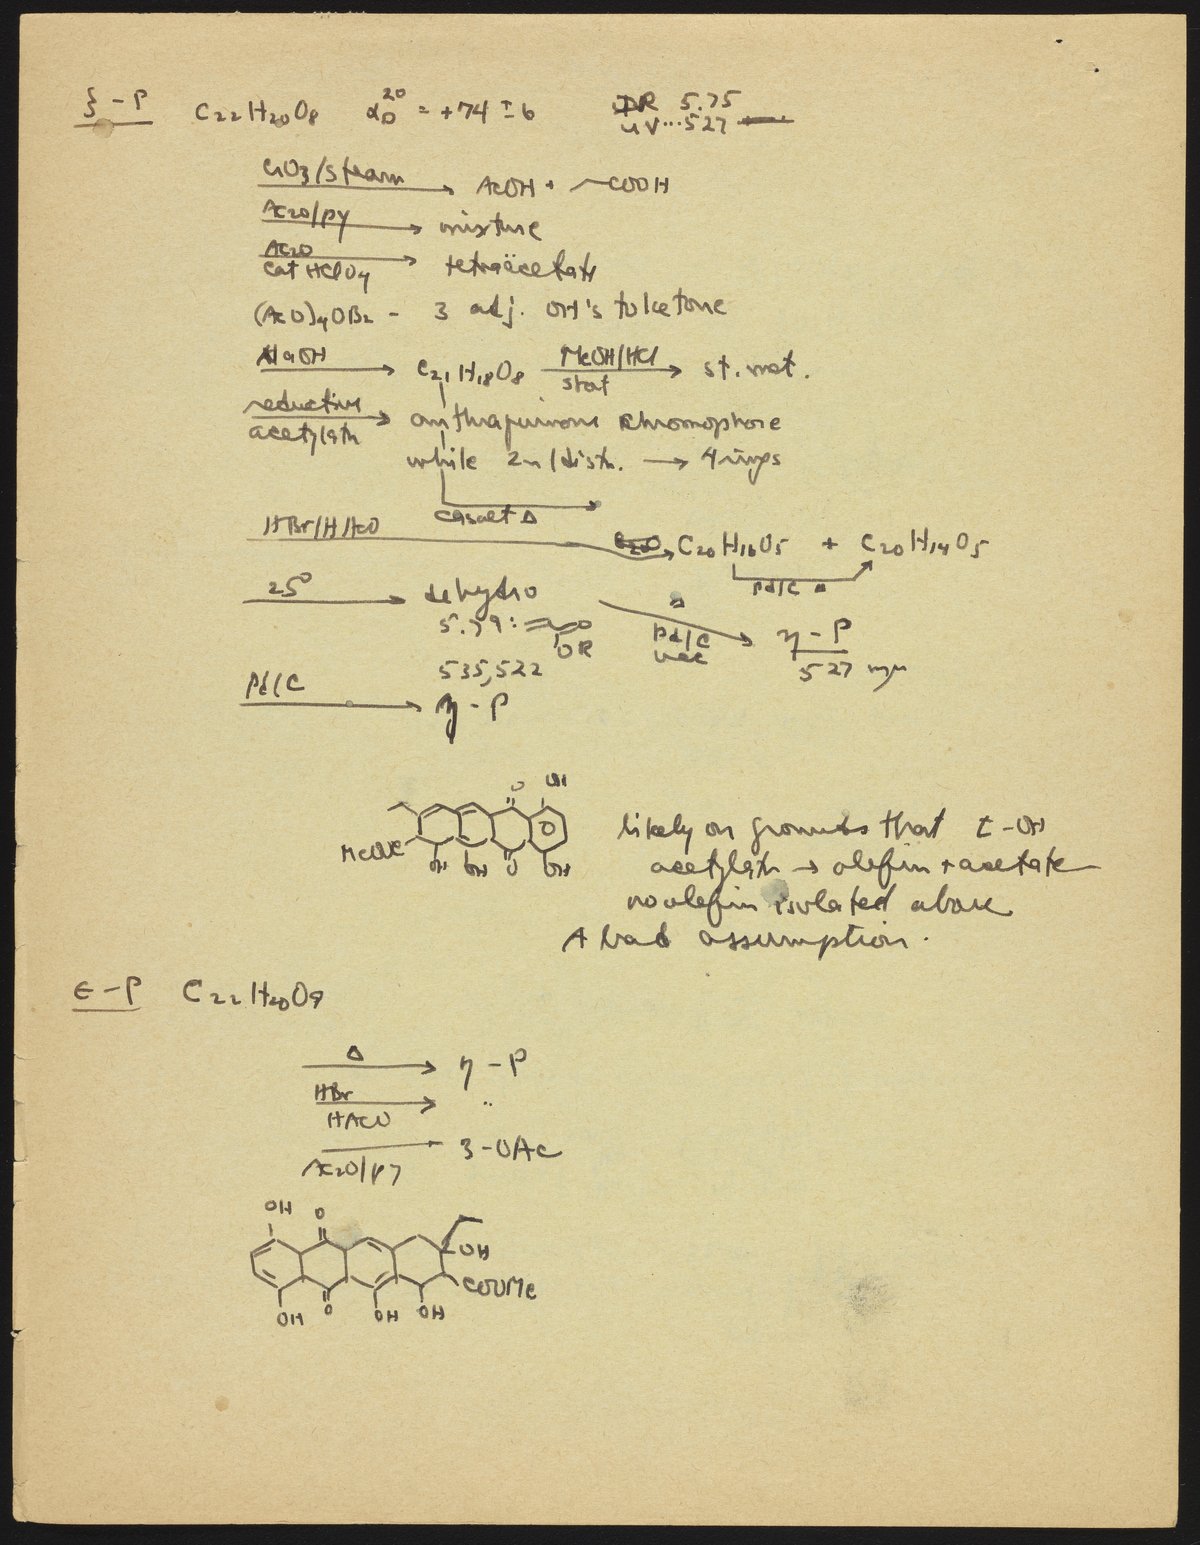 ξ - P   C22H20O8   α D 20 = +74 ± 6   IR 5.75
UV...527
CrO3/steam → AcOH + COOH
Ac2O/py → mixture
Ac2O cat HClO4 → tetraäcetate
(AcO)4OB2 - 3 adj. OH's to ketone
NaOH → C21H18O8 MeOH/HCl → st. mat.
reductive acetylatn → anthraquinone chromophore
while Zn/distn. → 4 rings
Δ
HBr/HAcO → C20H16O5 + C20H14O5
Pd/C Δ
25° → dehydro   Δ Pd/C vac → η - P
5.79: O OR   527 mμ
535,522
Pd/C → η - P
O OH
MeOOC OH OH O OH
likely on grounds that t-OH
acetylatn → olefin + acetate
no olefin isolated above
A bad assumption.
ε - P   C22H20O9
Δ → η - P
HBr HAcO → "
Ac2O/py → 3-OAc
OH O
OH
COOMe
OH O OH OH